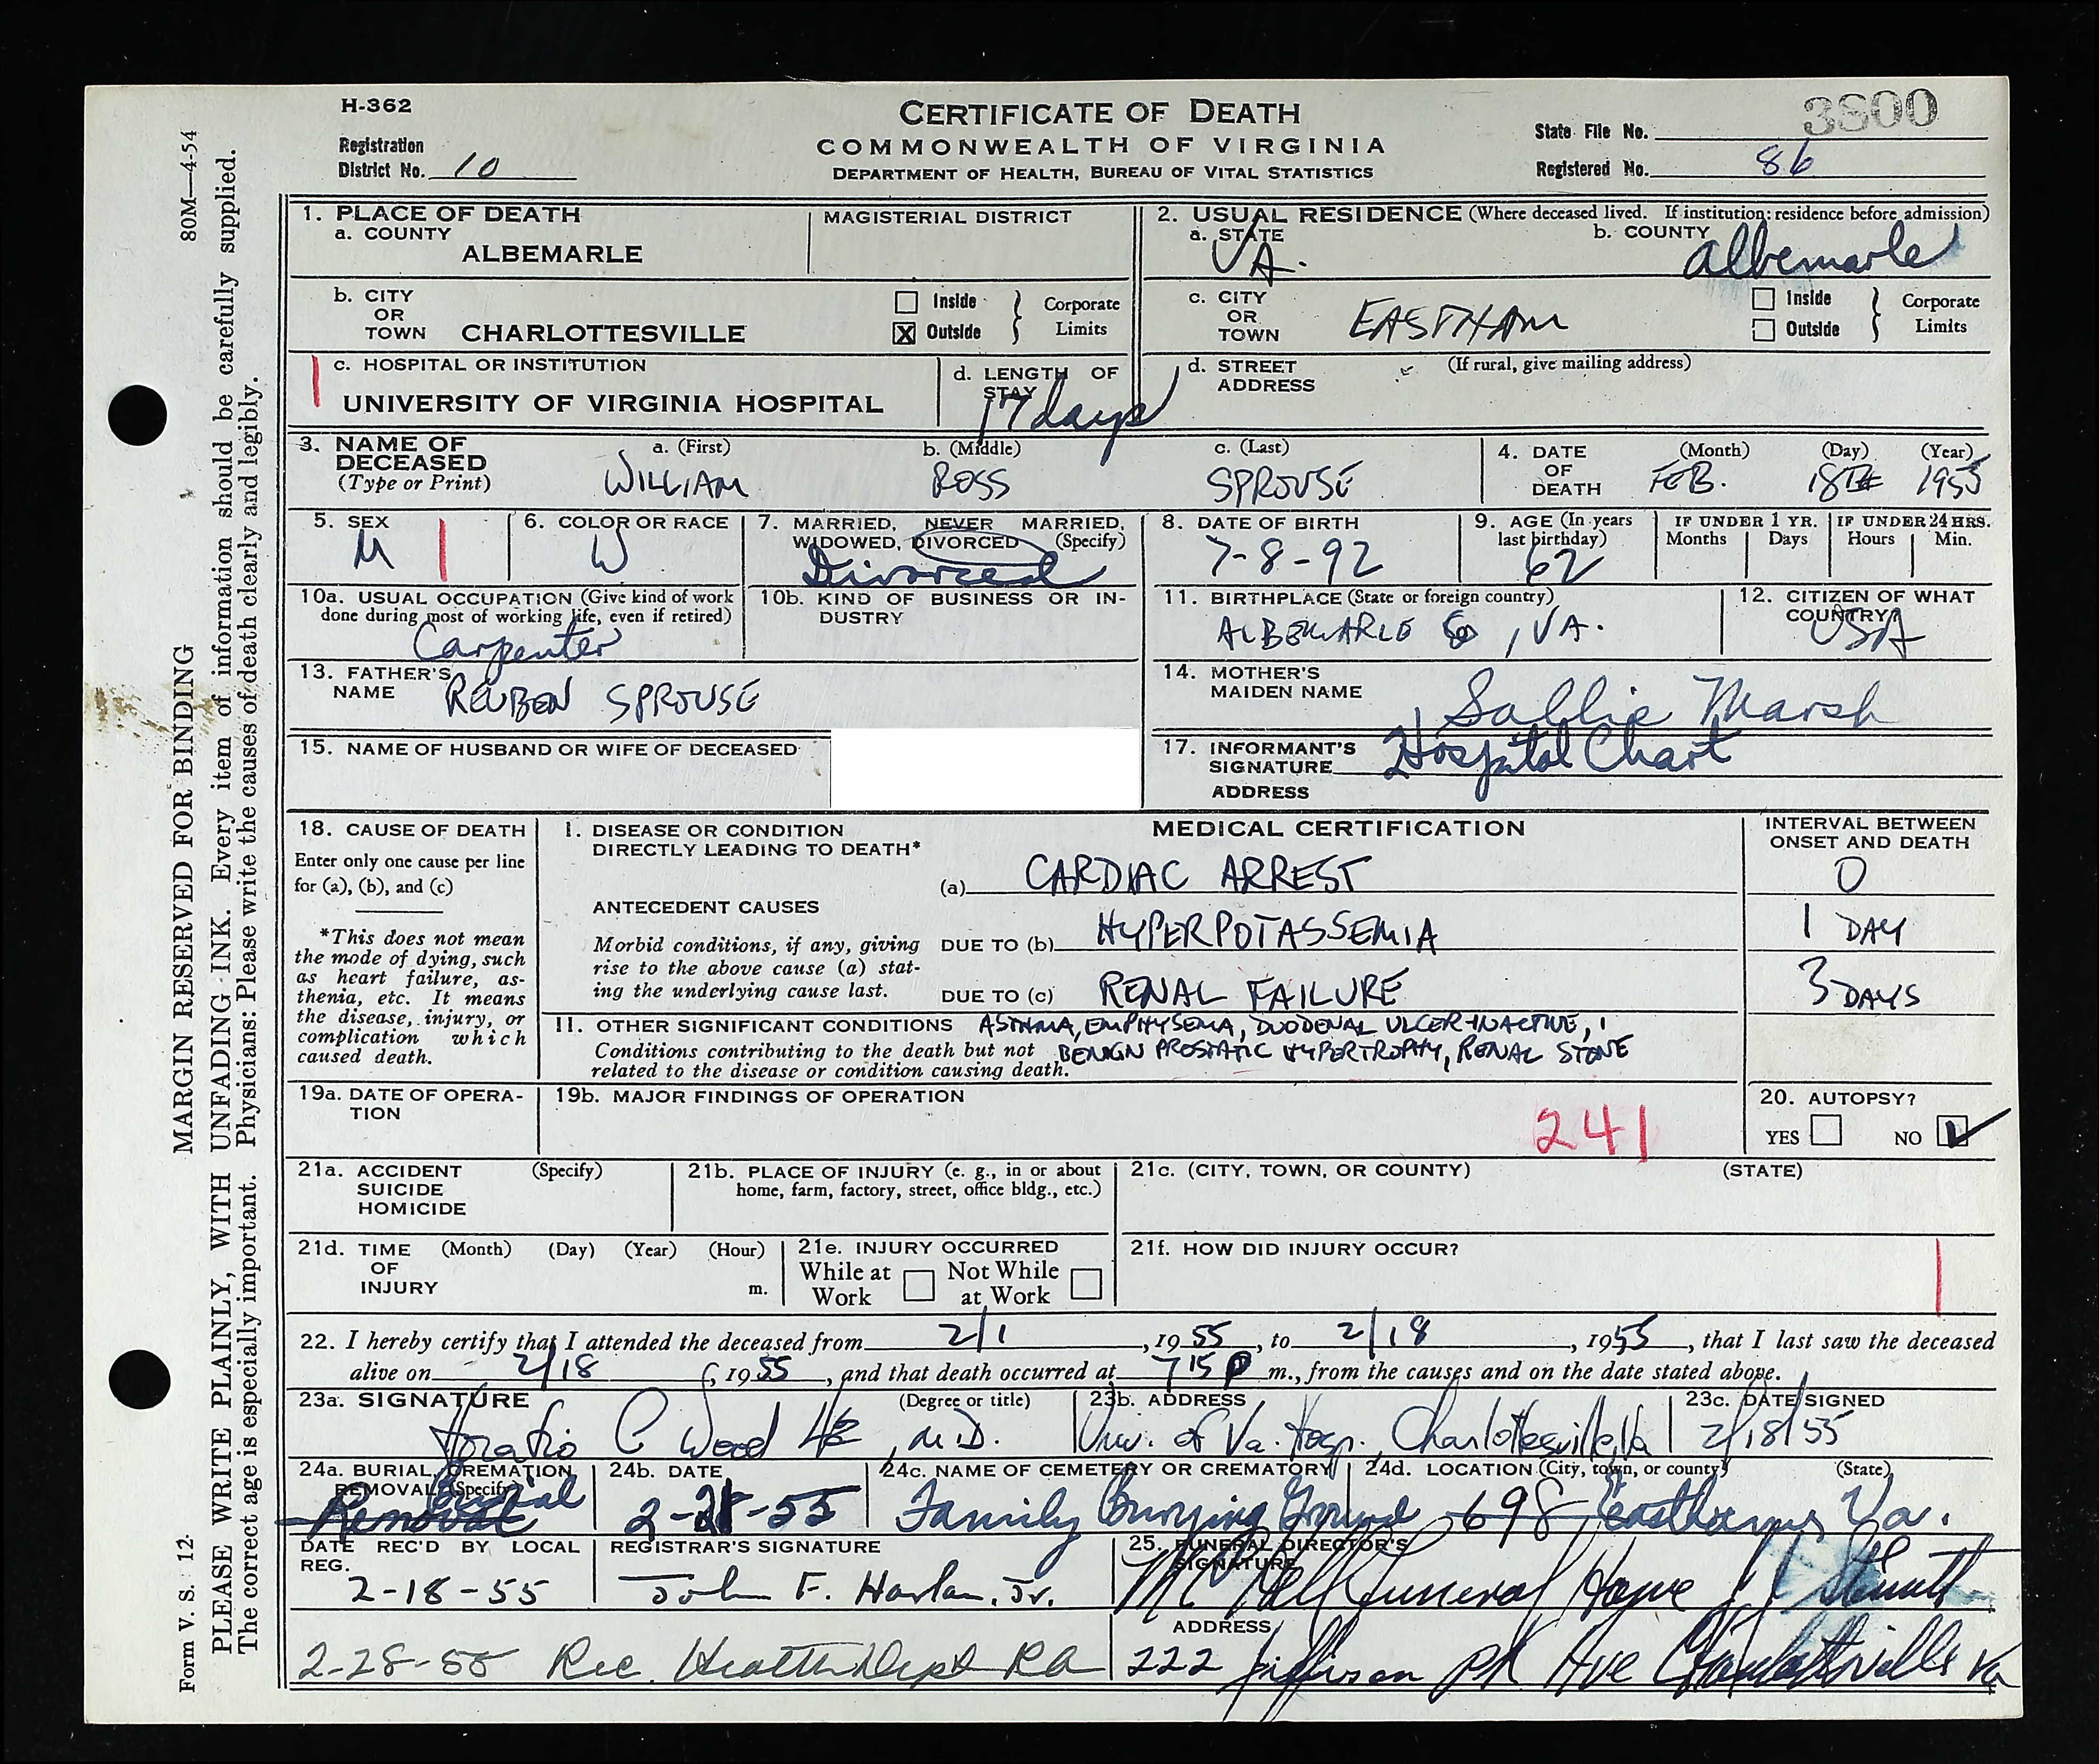 H-362
CERTIFICATE OF DEATH
3800
Registration
District No. 10
COMMONWEALTH OF VIRGINIA
State File No.
DEPARTMENT OF HEALTH, BUREAU OF VITAL STATISTICS
Registered No. 86
1. PLACE OF DEATH
a. COUNTY
ALBEMARLE
MAGISTERIAL DISTRICT
2. USUAL RESIDENCE (Where deceased lived. If institution: residence before admission)
a. STATE
VA.
b. COUNTY
Albemarle
b. CITY
OR
TOWN CHARLOTTESVILLE
Inside
X Outside
Corporate
Limits
c. CITY
OR
TOWN
EASTHAM
Inside
Outside
Corporate
Limits
c. HOSPITAL OR INSTITUTION
UNIVERSITY OF VIRGINIA HOSPITAL
d. LENGTH OF
STAY
17 days
d. STREET
ADDRESS
(If rural, give mailing address)
3. NAME OF
DECEASED
(Type or Print)
a. (First)
WILLIAM
b. (Middle)
ROSS
c. (Last)
SPROUSE
4. DATE
OF
DEATH
(Month) (Day) (Year)
FEB. 18TH 1955
5. SEX
M
6. COLOR OR RACE
W
7. MARRIED, NEVER MARRIED,
WIDOWED, DIVORCED (Specify)
Divorced
8. DATE OF BIRTH
7-8-92
9. AGE (In years
last birthday)
62
IF UNDER 1 YR.
Months Days
IF UNDER 24 HRS.
Hours Min.
10a. USUAL OCCUPATION (Give kind of work
done during most of working life, even if retired)
Carpenter
10b. KIND OF BUSINESS OR IN-
DUSTRY
11. BIRTHPLACE (State or foreign country)
ALBEMARLE Co, VA.
12. CITIZEN OF WHAT
COUNTRY?
USA
13. FATHER'S
NAME
REUBEN SPROUSE
14. MOTHER'S
MAIDEN NAME
Sallie Marsh
15. NAME OF HUSBAND OR WIFE OF DECEASED
17. INFORMANT'S
SIGNATURE Hospital Chart
ADDRESS
18. CAUSE OF DEATH
Enter only one cause per line
for (a), (b), and (c)
*This does not mean
the mode of dying, such
as heart failure, as-
thenia, etc. It means
the disease, injury, or
complication which
caused death.
MEDICAL CERTIFICATION
INTERVAL BETWEEN
ONSET AND DEATH
I. DISEASE OR CONDITION
DIRECTLY LEADING TO DEATH*
(a) CARDIAC ARREST 0
ANTECEDENT CAUSES
Morbid conditions, if any, giving
rise to the above cause (a) stat-
ing the underlying cause last.
DUE TO (b) HYPERPOTASSEMIA 1 DAY
DUE TO (c) RENAL FAILURE 3 DAYS
II. OTHER SIGNIFICANT CONDITIONS
Conditions contributing to the death but not
related to the disease or condition causing death.
ASTHMA, EMPHYSEMA, DUODENAL ULCER-INACTIVE,
BENIGN PROSTATIC HYPERTROPHY, RENAL STONE
19a. DATE OF OPERA-
TION
19b. MAJOR FINDINGS OF OPERATION
241
20. AUTOPSY?
YES NO
21a. ACCIDENT (Specify)
SUICIDE
HOMICIDE
21b. PLACE OF INJURY (e. g., in or about
home, farm, factory, street, office bldg., etc.)
21c. (CITY, TOWN, OR COUNTY) (STATE)
21d. TIME (Month) (Day) (Year) (Hour)
OF
INJURY m.
21e. INJURY OCCURRED
While at
Work
Not While
at Work
21f. HOW DID INJURY OCCUR?
22. I hereby certify that I attended the deceased from 2/1, 1955, to 2/18, 1955, that I last saw the deceased
alive on 2/18, 1955, and that death occurred at 715 P m., from the causes and on the date stated above.
23a. SIGNATURE (Degree or title)
Horatio C Wood, M.D.
23b. ADDRESS
Univ. of Va. Hosp., Charlottesville, Va
23c. DATE SIGNED
2/18/55
24a. BURIAL, CREMATION
REMOVAL (Specify)
Burial
Removal
24b. DATE
2-21-55
24c. NAME OF CEMETERY OR CREMATORY
Family Burying Ground
24d. LOCATION (City, town, or county) (State)
698 Eastham, Va.
DATE REC'D BY LOCAL
REG.
2-18-55
REGISTRAR'S SIGNATURE
John F. Harlan, Jr.
25. FUNERAL DIRECTOR'S
SIGNATURE
Funeral Home
2-28-55 Rec. Health Dept
ADDRESS
222 Jefferson Pk Ave Charlottesville Va
Form V. S. 12
MARGIN RESERVED FOR BINDING
80M—4-54
PLEASE WRITE PLAINLY, WITH UNFADING INK. Every item of information should be carefully supplied.
The correct age is especially important. Physicians: Please write the causes of death clearly and legibly.